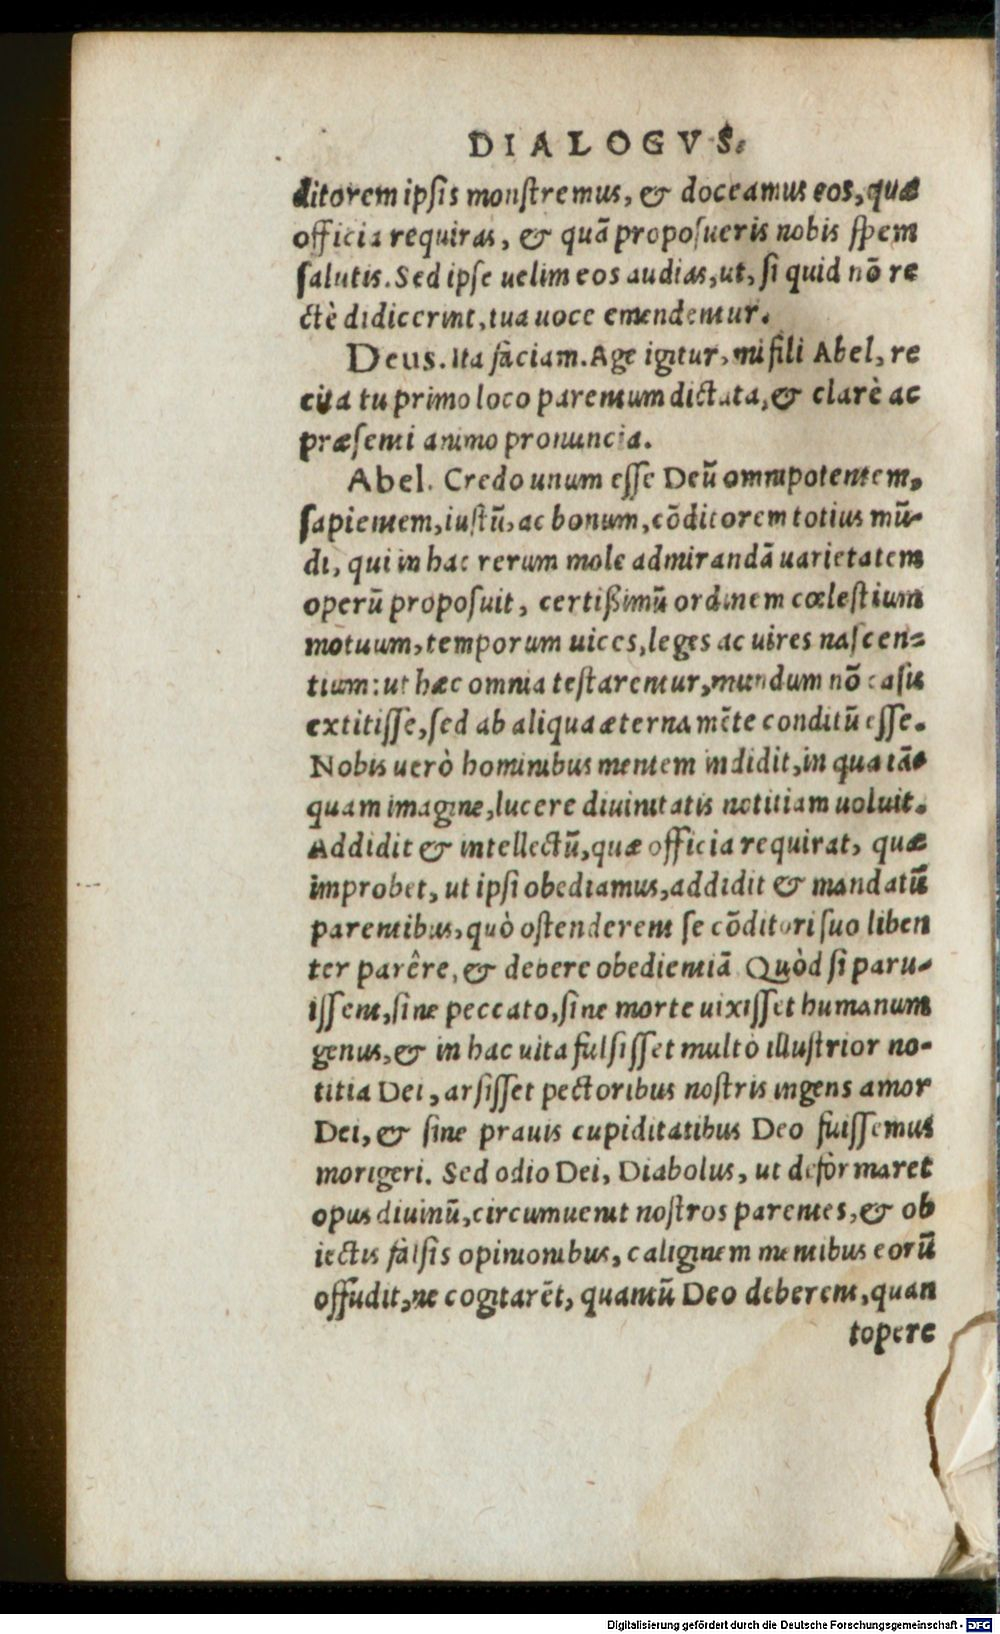 DIALOGVS.
ditorem ipsis monstremus, & doceamus eos, quæ
officia requiras, & quā proposueris nobis spem
salutis. Sed ipse uelim eos audias, ut, si quid nō re
ctè didicerint, tua uoce emendentur.
Deus. Ita faciam. Age igitur, mi fili Abel, re
cita tu primo loco parentum dictata, & clarè ac
præsenti animo pronuncia.
Abel. Credo unum esse Deū omnipotentem,
sapientem, iustū, ac bonum, cōditorem totius mū-
di, qui in hac rerum mole admirandā uarietatem
operū proposuit, certißimū ordinem cœlestium
motuum, temporum uices, leges ac uires nascen-
tium: ut hæc omnia testarentur, mundum nō casu
extitisse, sed ab aliqua æterna mēte conditū esse.
Nobis uerò hominibus mentem indidit, in qua tā
quam imagine, lucere diuinitatis notitiam uoluit.
Addidit & intellectū, quæ officia requirat, quæ
improbet, ut ipsi obediamus, addidit & mandatū
parentibus, quò ostenderent se cōditori suo liben
ter parêre, & debere obedientiā Quòd si paru-
issent, sine peccato, sine morte uixisset humanum
genus, & in hac uita fulsisset multò illustrior no-
titia Dei, arsisset pectoribus nostris ingens amor
Dei, & sine prauis cupiditatibus Deo fuissemus
morigeri. Sed odio Dei, Diabolus, ut deformaret
opus diuinū, circumuenit nostros parentes, & ob
iectis falsis opinionibus, caliginem mentibus eorū
offudit, ne cogitarēt, quantū Deo deberent, quan
topere
Digitalisierung gefördert durch die Deutsche Forschungsgemeinschaft - DFG